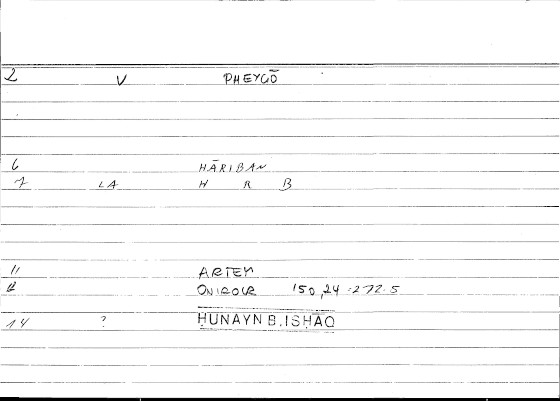 2 V PHEYGŌ
6 HĀRIBAN
7 LA H R B
11 ARTEM
12 150,24 -272.5
14 ? ḤUNAYN B. ISḤĀQ